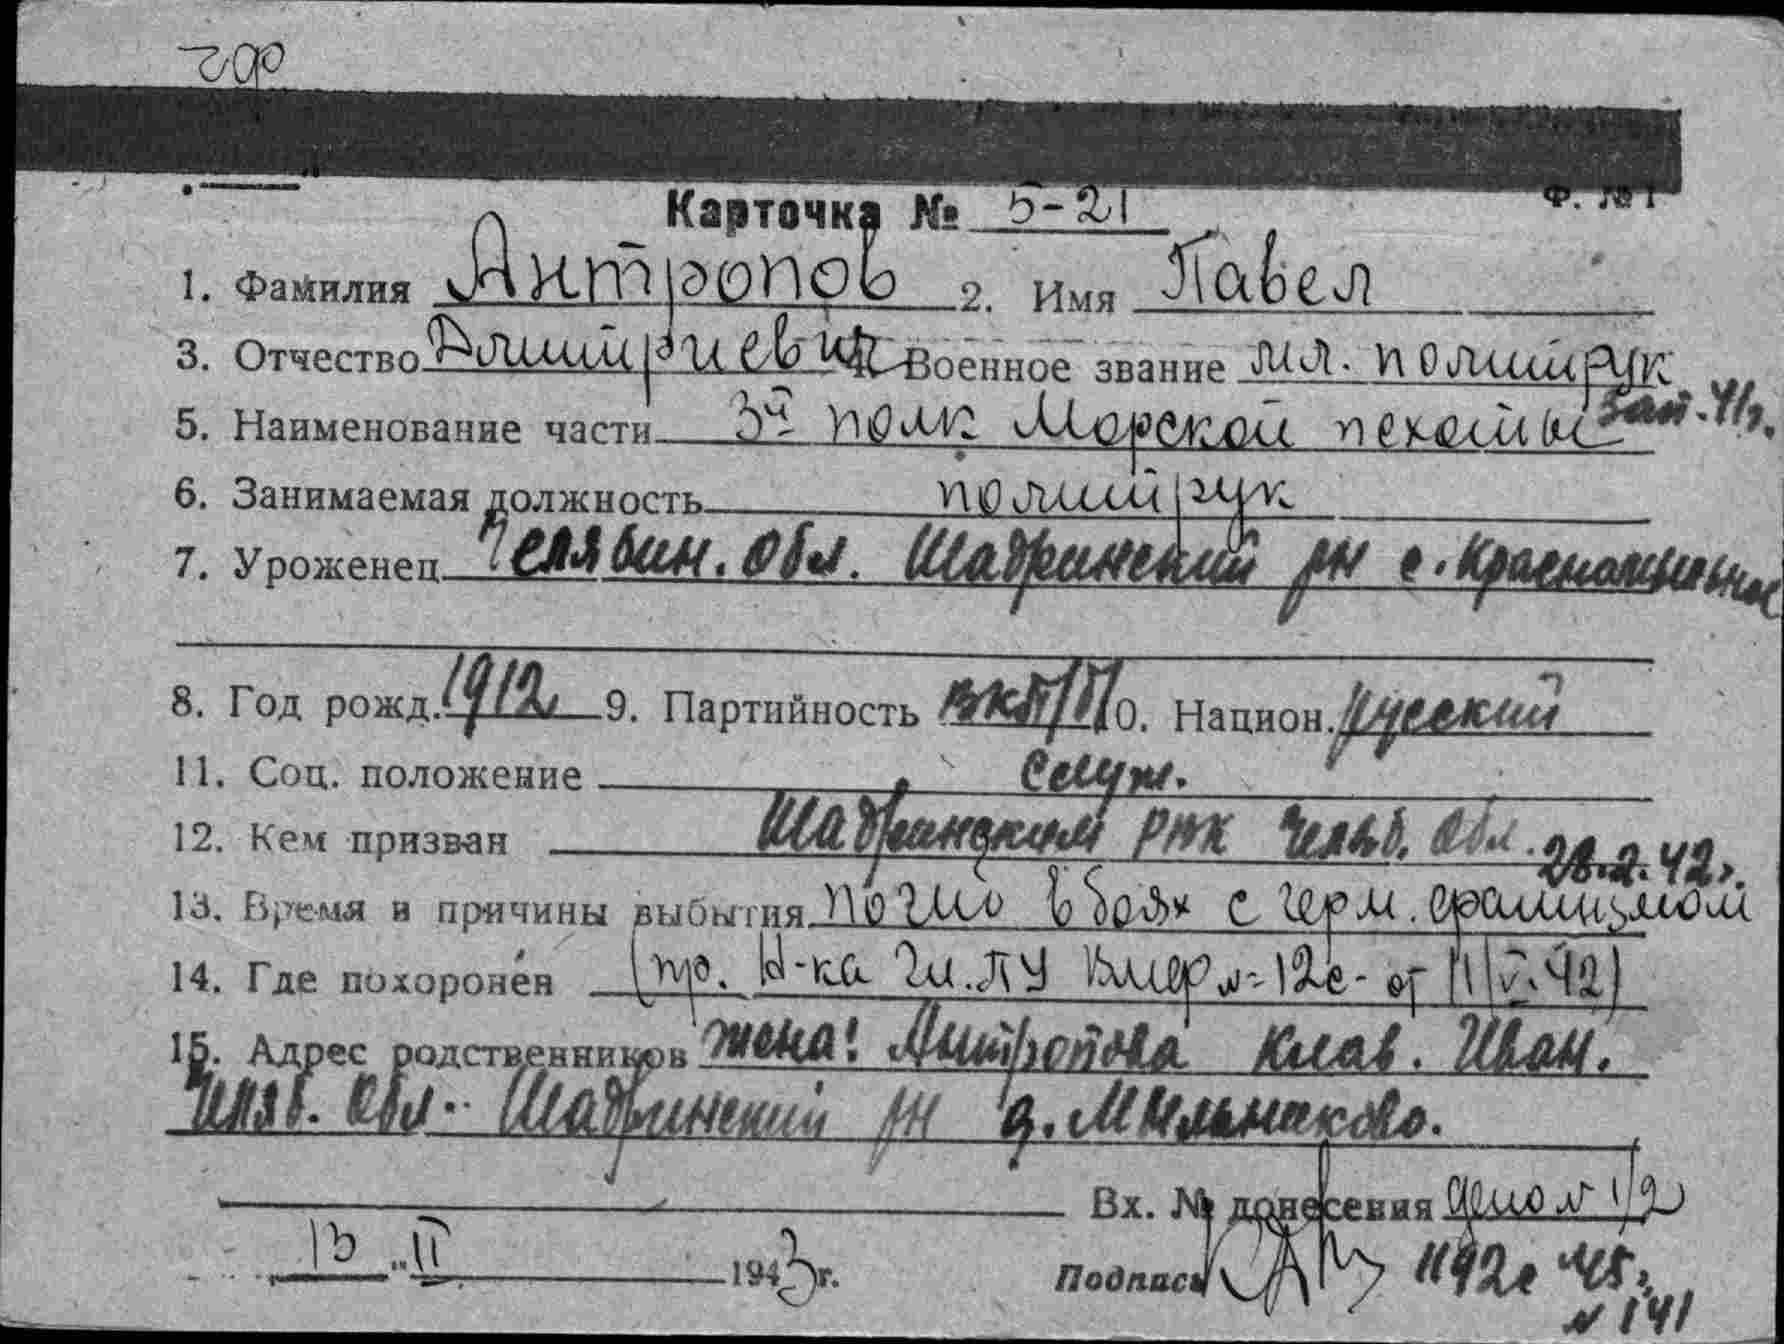 Ф. № 1
Карточка № 5-21
1. Фамилия Антропов 2. Имя Павел
3. Отчество Дмитриевич Военное звание мл. политрук
5. Наименование части 3й полк Морской пехоты 41г.
6. Занимаемая должность политрук
7. Уроженец Челябин. обл. Шадринский рн с. Красномыльское
8. Год рожд. 1912 9. Партийность ВКП/б/ 10. Национ. русский
11. Соц. положение служ.
12. Кем призван Шадринским РВК Челяб. обл.
28.2.42г.
13. Время и причины выбытия погиб в боях с герм. фашизмом
14. Где похоронен (пр. Н-ка Гл. ПУ Вмф №-12с- от 11/V.42)
15. Адрес родственников жена: Антропова Клав. Иван.
Челяб. обл. Шадринский рн д. Мыльниково.
Вх. № донесения дело № 1/2
13 " II 1943г. Подпись 1192с 45г.
№ 141